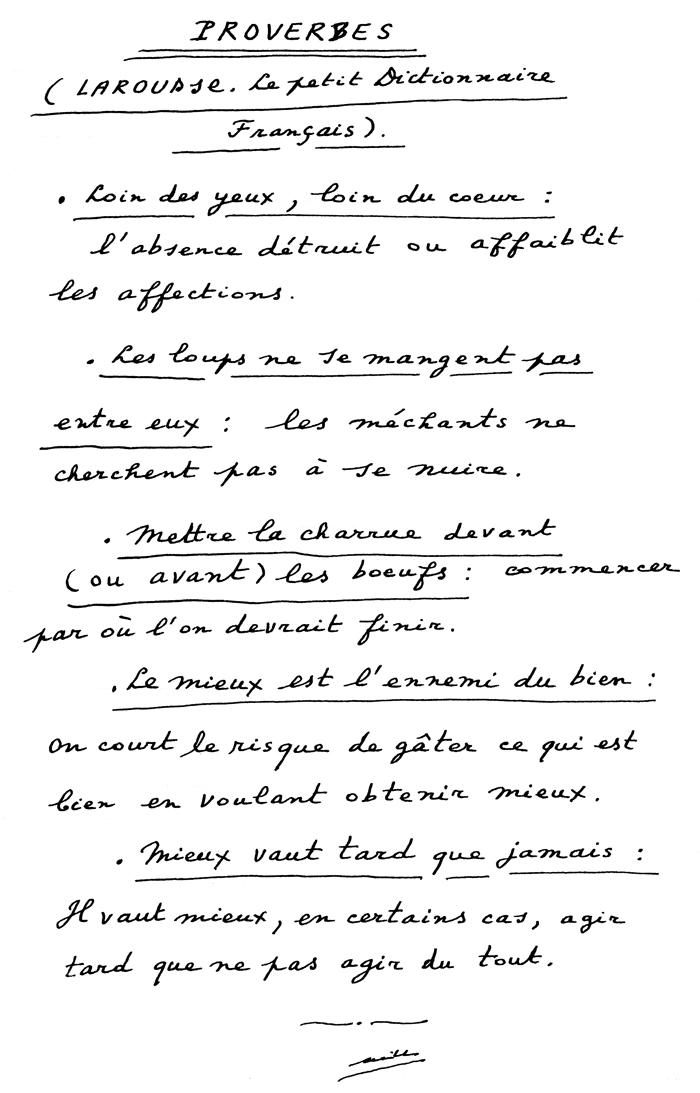 PROVERBES
( LAROUSSE. Le petit Dictionnaire
Français ).
. Loin des yeux, loin du coeur :
l'absence détruit ou affaiblit
les affections.
. Les loups ne se mangent pas
entre eux : les méchants ne
cherchent pas à se nuire.
. Mettre la charrue devant
(ou avant) les boeufs : commencer
par où l'on devrait finir.
. Le mieux est l'ennemi du bien :
on court le risque de gâter ce qui est
bien en voulant obtenir mieux.
. Mieux vaut tard que jamais :
Il vaut mieux, en certains cas, agir
tard que ne pas agir du tout.